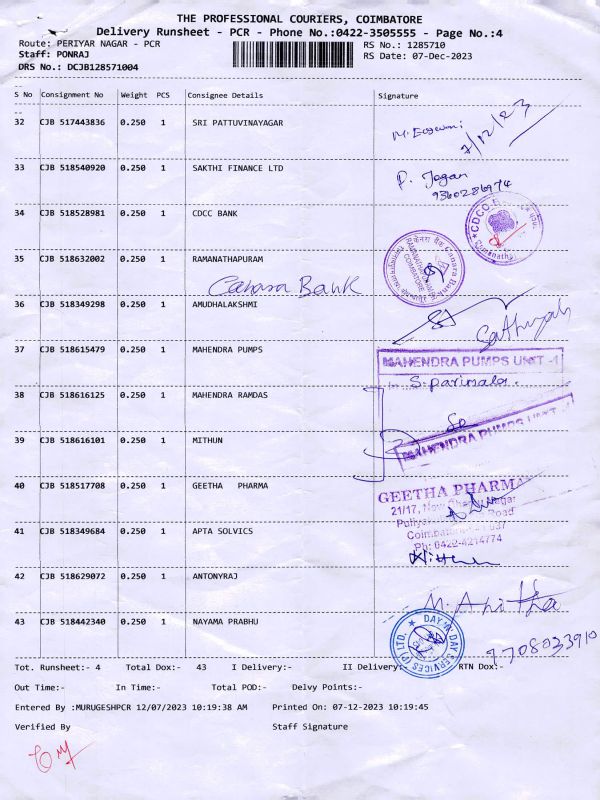 THE PROFESSIONAL COURIERS, COIMBATORE
Delivery Runsheet - PCR - Phone No.:0422-3505555 - Page No.:4
Route: PERIYAR NAGAR - PCR
RS No.: 1285710
Staff: PONRAJ
RS Date: 07-Dec-2023
DRS No.: DCJB128571004
S No Consignment No Weight PCS Consignee Details Signature
32 CJB 517443836 0.250 1 SRI PATTUVINAYAGAR
7/12/23
33 CJB 518540920 0.250 1 SAKTHI FINANCE LTD
P. Jagan
9360286974
34 CJB 518528981 0.250 1 CDCC BANK
35 CJB 518632002 0.250 1 RAMANATHAPURAM
Canara Bank
36 CJB 518349298 0.250 1 AMUDHALAKSHMI
37 CJB 518615479 0.250 1 MAHENDRA PUMPS
MAHENDRA PUMPS UNIT -1
S. parimala.
38 CJB 518616125 0.250 1 MAHENDRA RAMDAS
39 CJB 518616101 0.250 1 MITHUN
MAHENDRA PUMPS UNIT -1
40 CJB 518517708 0.250 1 GEETHA PHARMA
GEETHA PHARMA
21/17, New
Road
Ph: 0422-4214774
41 CJB 518349684 0.250 1 APTA SOLVICS
42 CJB 518629072 0.250 1 ANTONYRAJ
M. Anitha
43 CJB 518442340 0.250 1 NAYAMA PRABHU
DAY N DAY SERVICES (P) LTD.
9708033910
Tot. Runsheet:- 4 Total Dox:- 43 I Delivery:- II Delivery:- RTN Dox:-
Out Time:- In Time:- Total POD:- Delvy Points:-
Entered By :MURUGESHPCR 12/07/2023 10:19:38 AM Printed On: 07-12-2023 10:19:45
Verified By Staff Signature